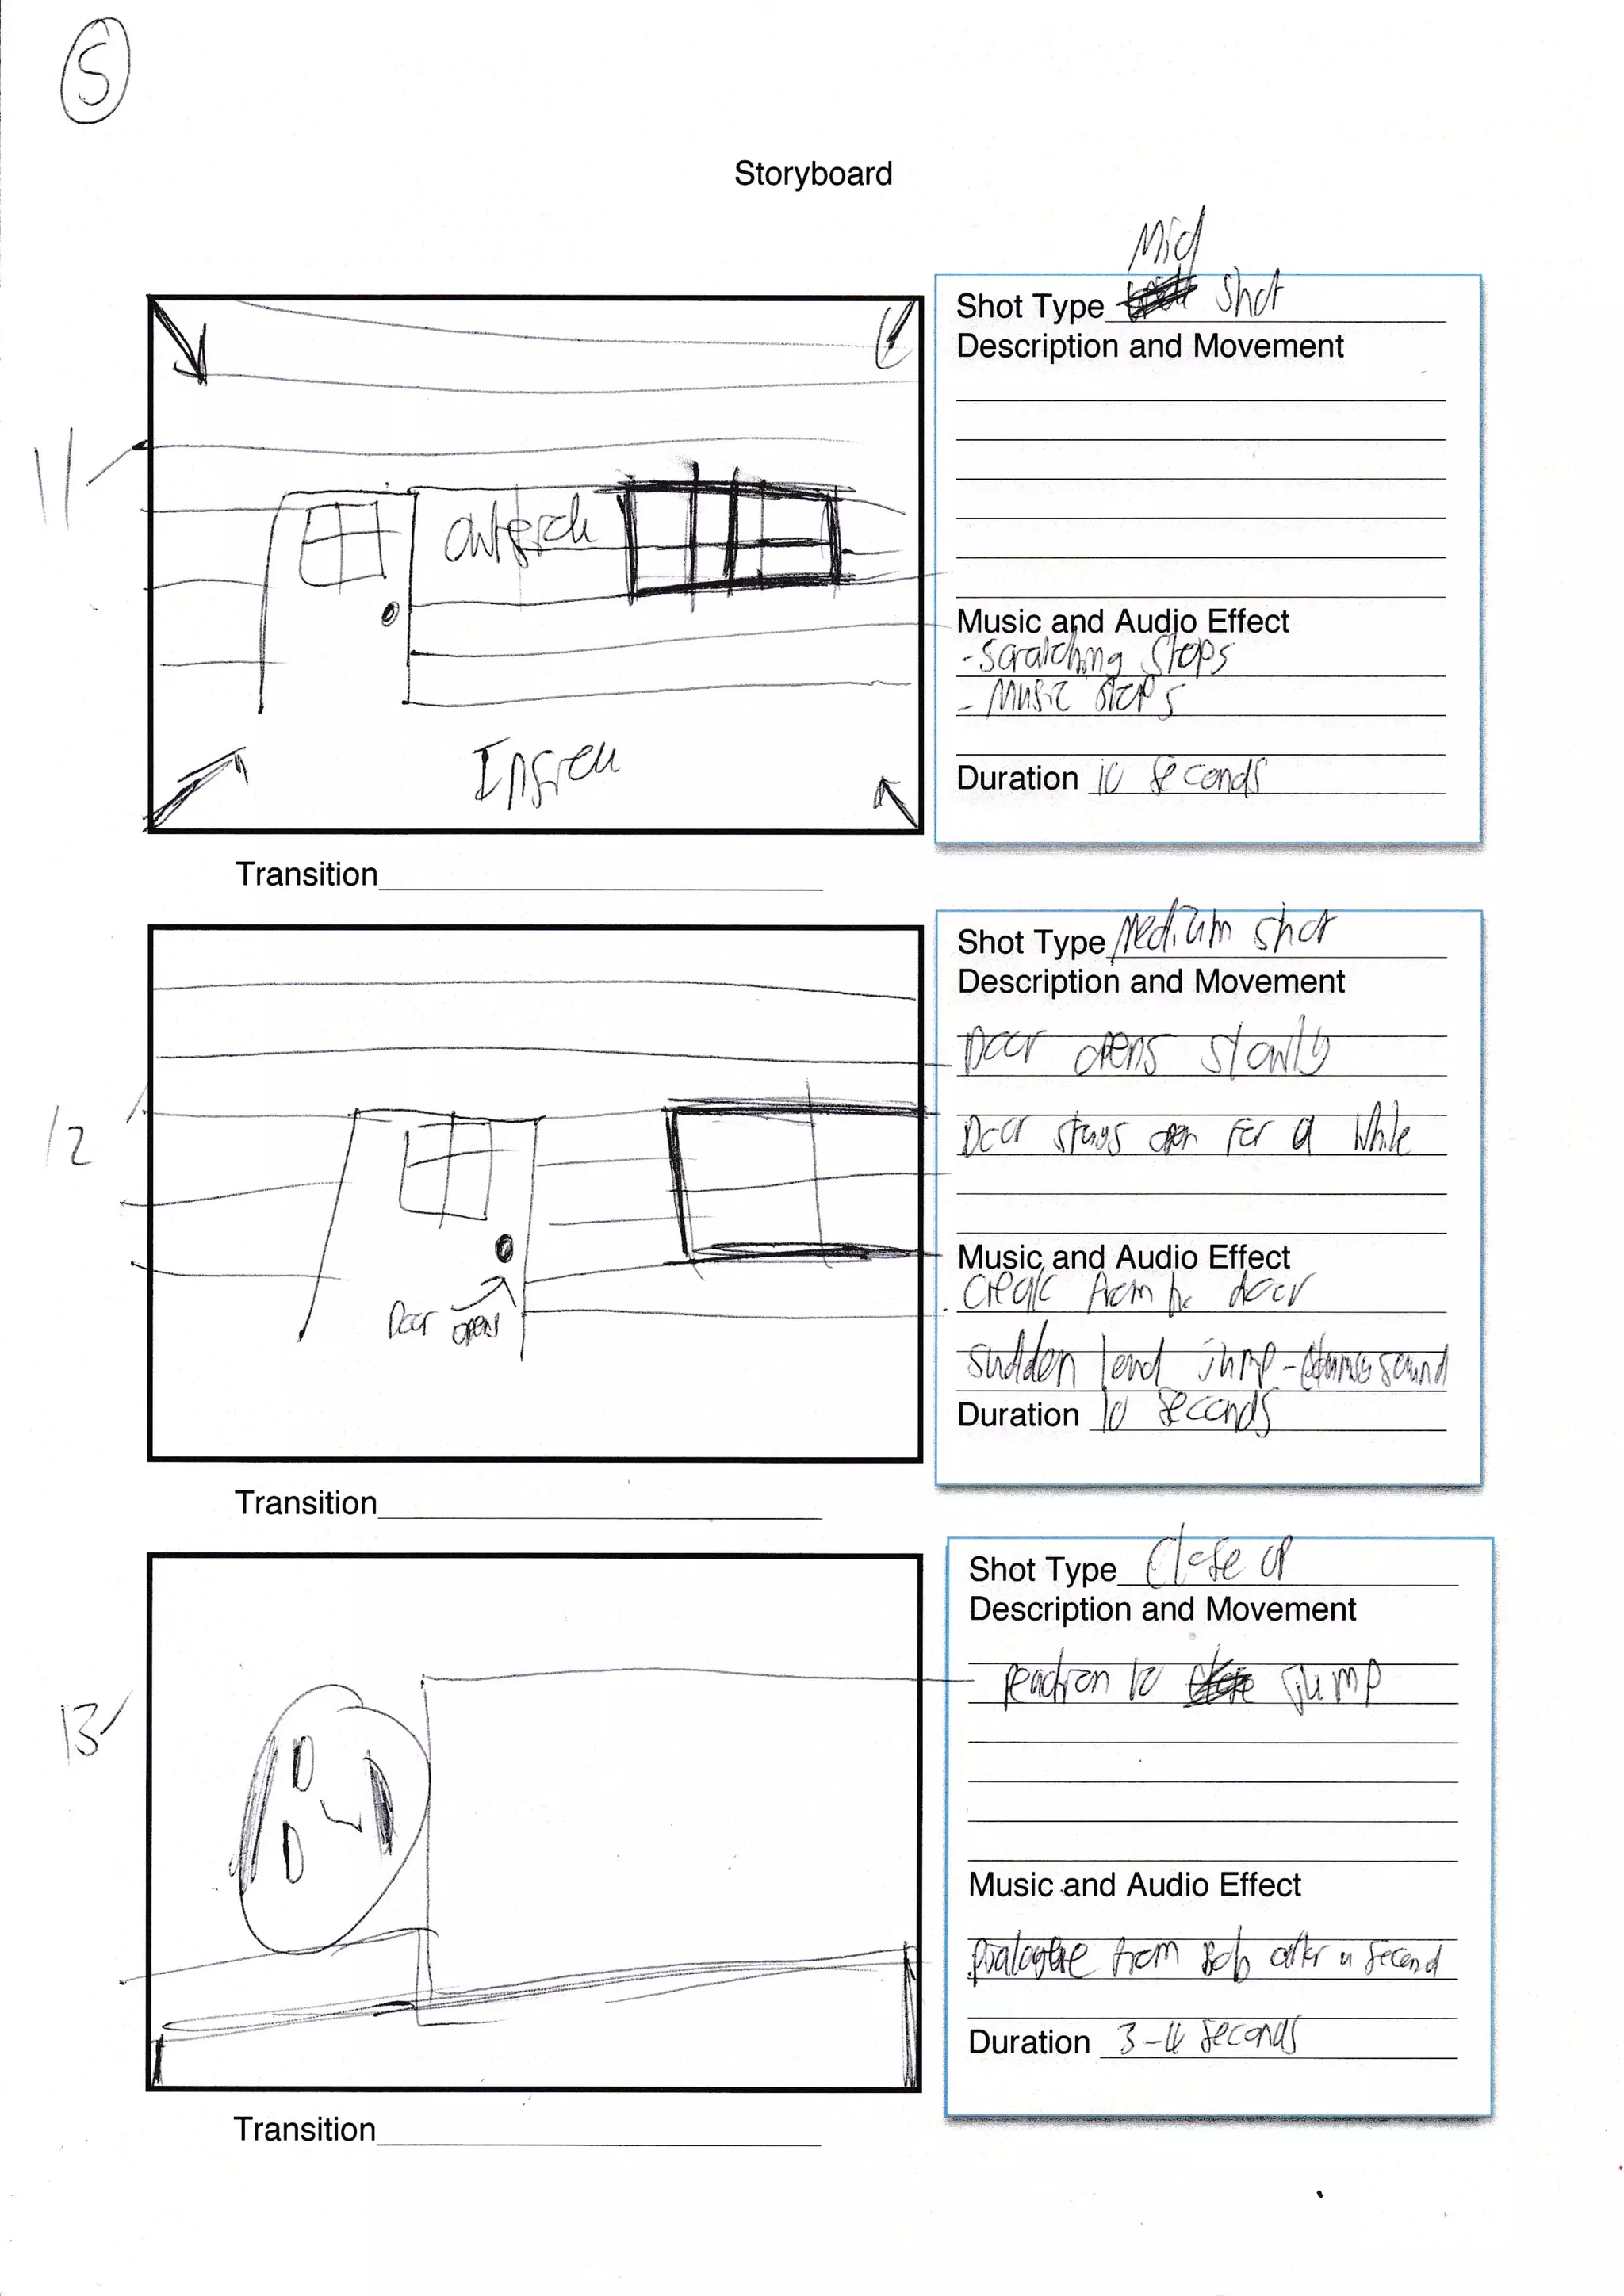 5
Storyboard
Mid
Shot Type shot
Description and Movement
11
Music and Audio Effect
- Scratching Stops
- Music stops
Duration 10 seconds
Transition
Shot Type Medium shot
Description and Movement
Door opens slowly
12
Door stays open for a while
Music and Audio Effect
creak from the door
Door opens
sudden loud jump- sound
Duration 10 seconds
Transition
Shot Type Close up
Description and Movement
reaction to jump
13
Music and Audio Effect
Dialogue from Bob after a second
Duration 3-4 seconds
Transition